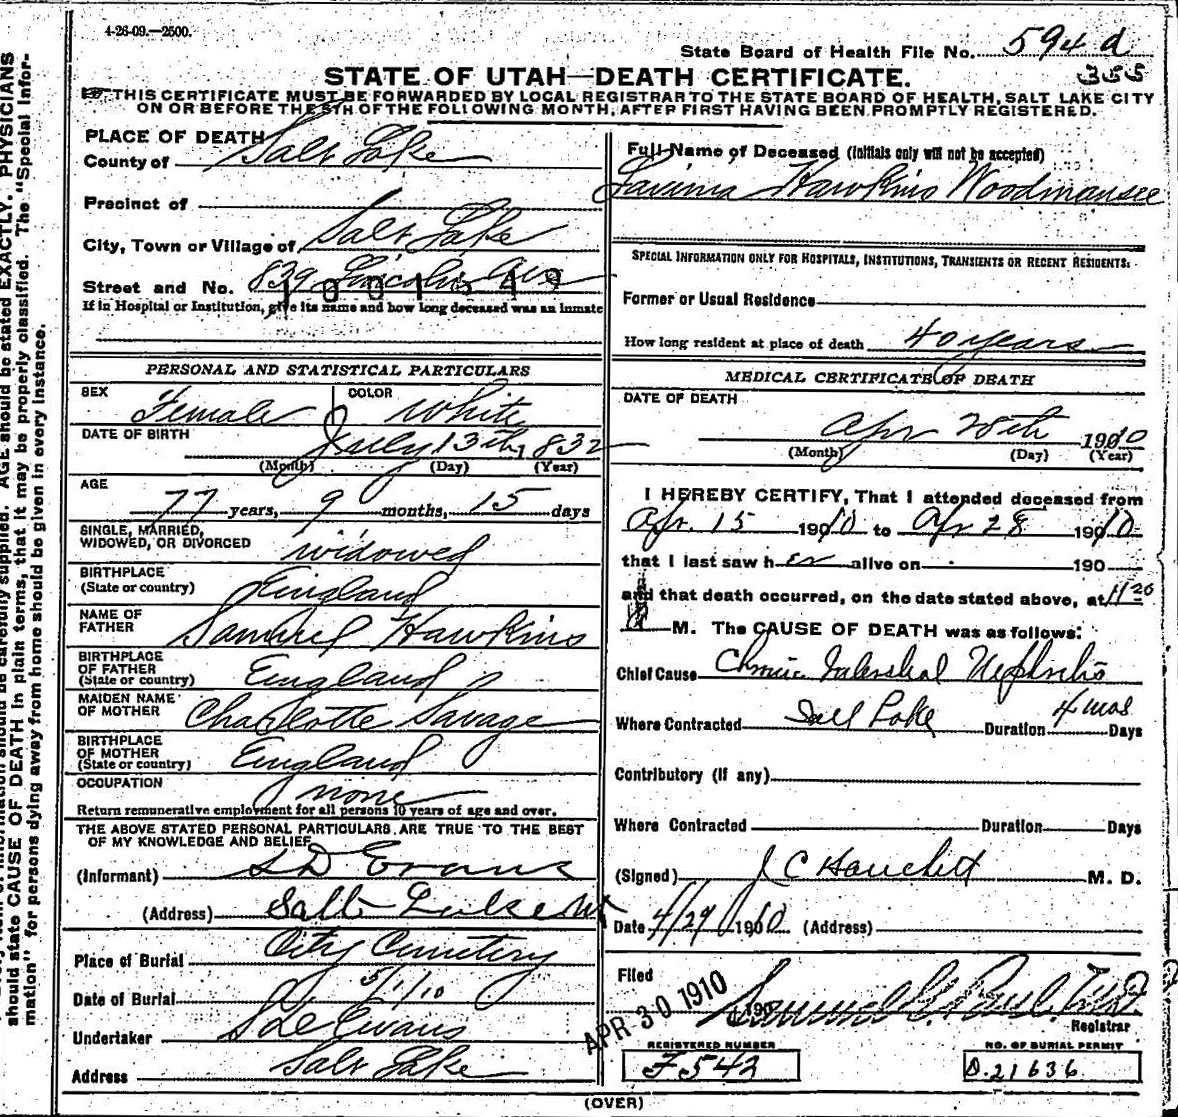 4-26-09.—2500.
State Board of Health File No. 594 d
355
STATE OF UTAH—DEATH CERTIFICATE.
THIS CERTIFICATE MUST BE FORWARDED BY LOCAL REGISTRAR TO THE STATE BOARD OF HEALTH, SALT LAKE CITY
ON OR BEFORE THE 5TH OF THE FOLLOWING MONTH, AFTER FIRST HAVING BEEN PROMPTLY REGISTERED.
PLACE OF DEATH
County of Salt Lake
Precinct of
City, Town or Village of Salt Lake
Street and No. 839 Lincoln Ave
If in Hospital or Institution, give its name and how long deceased was an inmate
PERSONAL AND STATISTICAL PARTICULARS
SEX Female COLOR White
DATE OF BIRTH July 13th, 1832
(Month) (Day) (Year)
AGE
77 years, 9 months, 15 days
SINGLE, MARRIED,
WIDOWED, OR DIVORCED widowed
BIRTHPLACE
(State or country) England
NAME OF
FATHER Samuel Hawkins
BIRTHPLACE
OF FATHER
(State or country) England
MAIDEN NAME
OF MOTHER Charlotte Savage
BIRTHPLACE
OF MOTHER
(State or country) England
OCCUPATION none
Return remunerative employment for all persons 10 years of age and over.
THE ABOVE STATED PERSONAL PARTICULARS ARE TRUE TO THE BEST
OF MY KNOWLEDGE AND BELIEF
(Informant) S D Evans
(Address) Salt Lake
Place of Burial City Cemetery
Date of Burial 5/1/10
Undertaker S D Evans
Address Salt Lake
Full Name of Deceased (Initials only will not be accepted)
Lavinia Hawkins Woodmansee
SPECIAL INFORMATION ONLY FOR HOSPITALS, INSTITUTIONS, TRANSIENTS OR RECENT RESIDENTS:
Former or Usual Residence
How long resident at place of death 40 years
MEDICAL CERTIFICATE OF DEATH
DATE OF DEATH
Apr 28th 1910
(Month) (Day) (Year)
I HEREBY CERTIFY, That I attended deceased from
Apr. 15 1910 to Apr 28 1910
that I last saw her alive on 190
and that death occurred, on the date stated above, at 11 20
M. The CAUSE OF DEATH was as follows:
Chief Cause Chronic Interstitial Nephritis
Where Contracted Salt Lake Duration 4 mos Days
Contributory (if any)
Where Contracted Duration Days
(Signed) J C M. D.
Date 4/29 1910 (Address)
Filed APR 30 1910 190
Samuel G. Paul
Registrar
REGISTERED NUMBER
F 542
NO. OF BURIAL PERMIT
D. 21636
(OVER)
should state CAUSE OF DEATH in plain terms, that it may be properly classified. The "Special Infor-
mation" for persons dying away from home should be given in every instance.